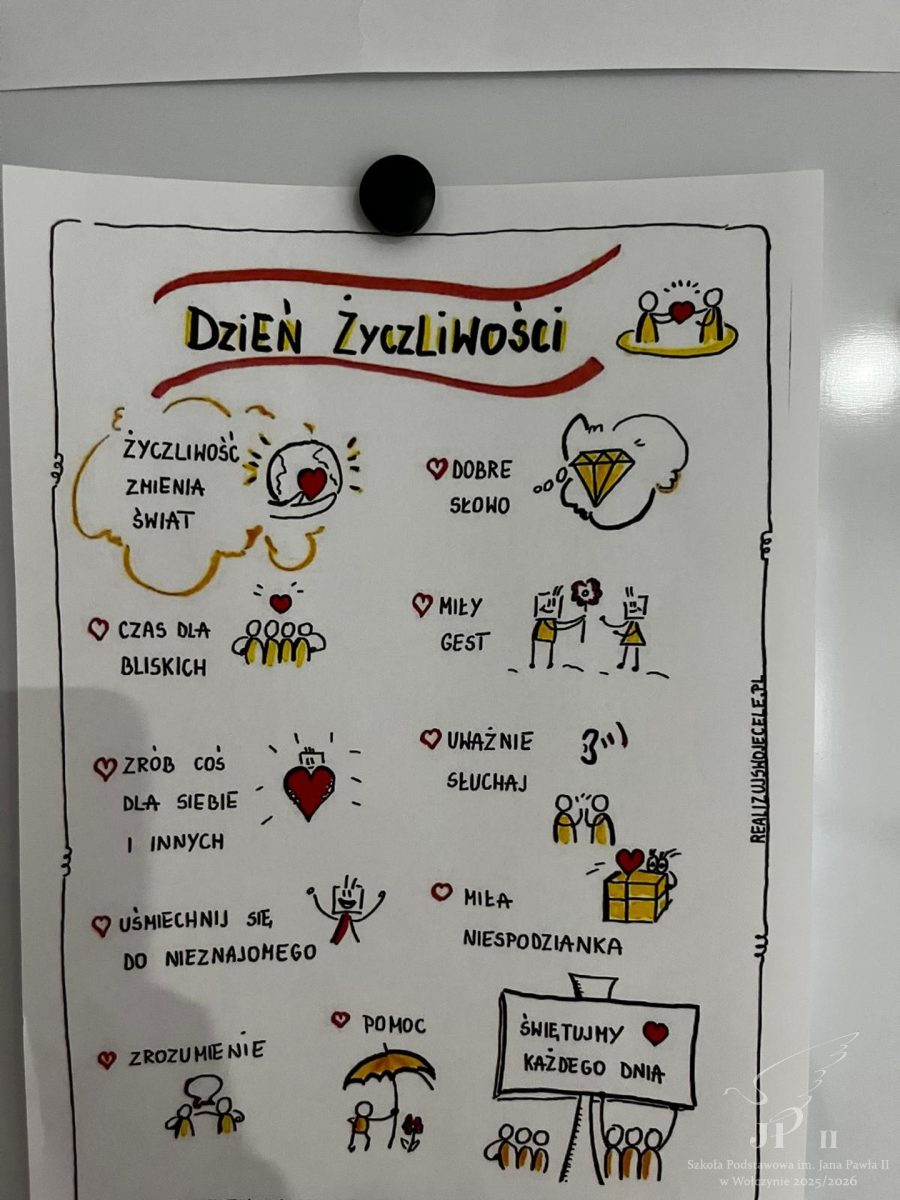 DZIEŃ ŻYCZLIWOŚCI
ŻYCZLIWOŚĆ
ZMIENIA
ŚWIAT
DOBRE
SŁOWO
CZAS DLA
BLISKICH
MIŁY
GEST
ZRÓB COŚ
DLA SIEBIE
I INNYCH
UWAŻNIE
SŁUCHAJ
UŚMIECHNIJ SIĘ
DO NIEZNAJOMEGO
MIŁA
NIESPODZIANKA
ZROZUMIENIE
POMOC
ŚWIĘTUJMY
KAŻDEGO DNIA
REALIZUJSWOJECELE.PL
JP II
Szkoła Podstawowa im. Jana Pawła II
w Wołczynie 2025/2026